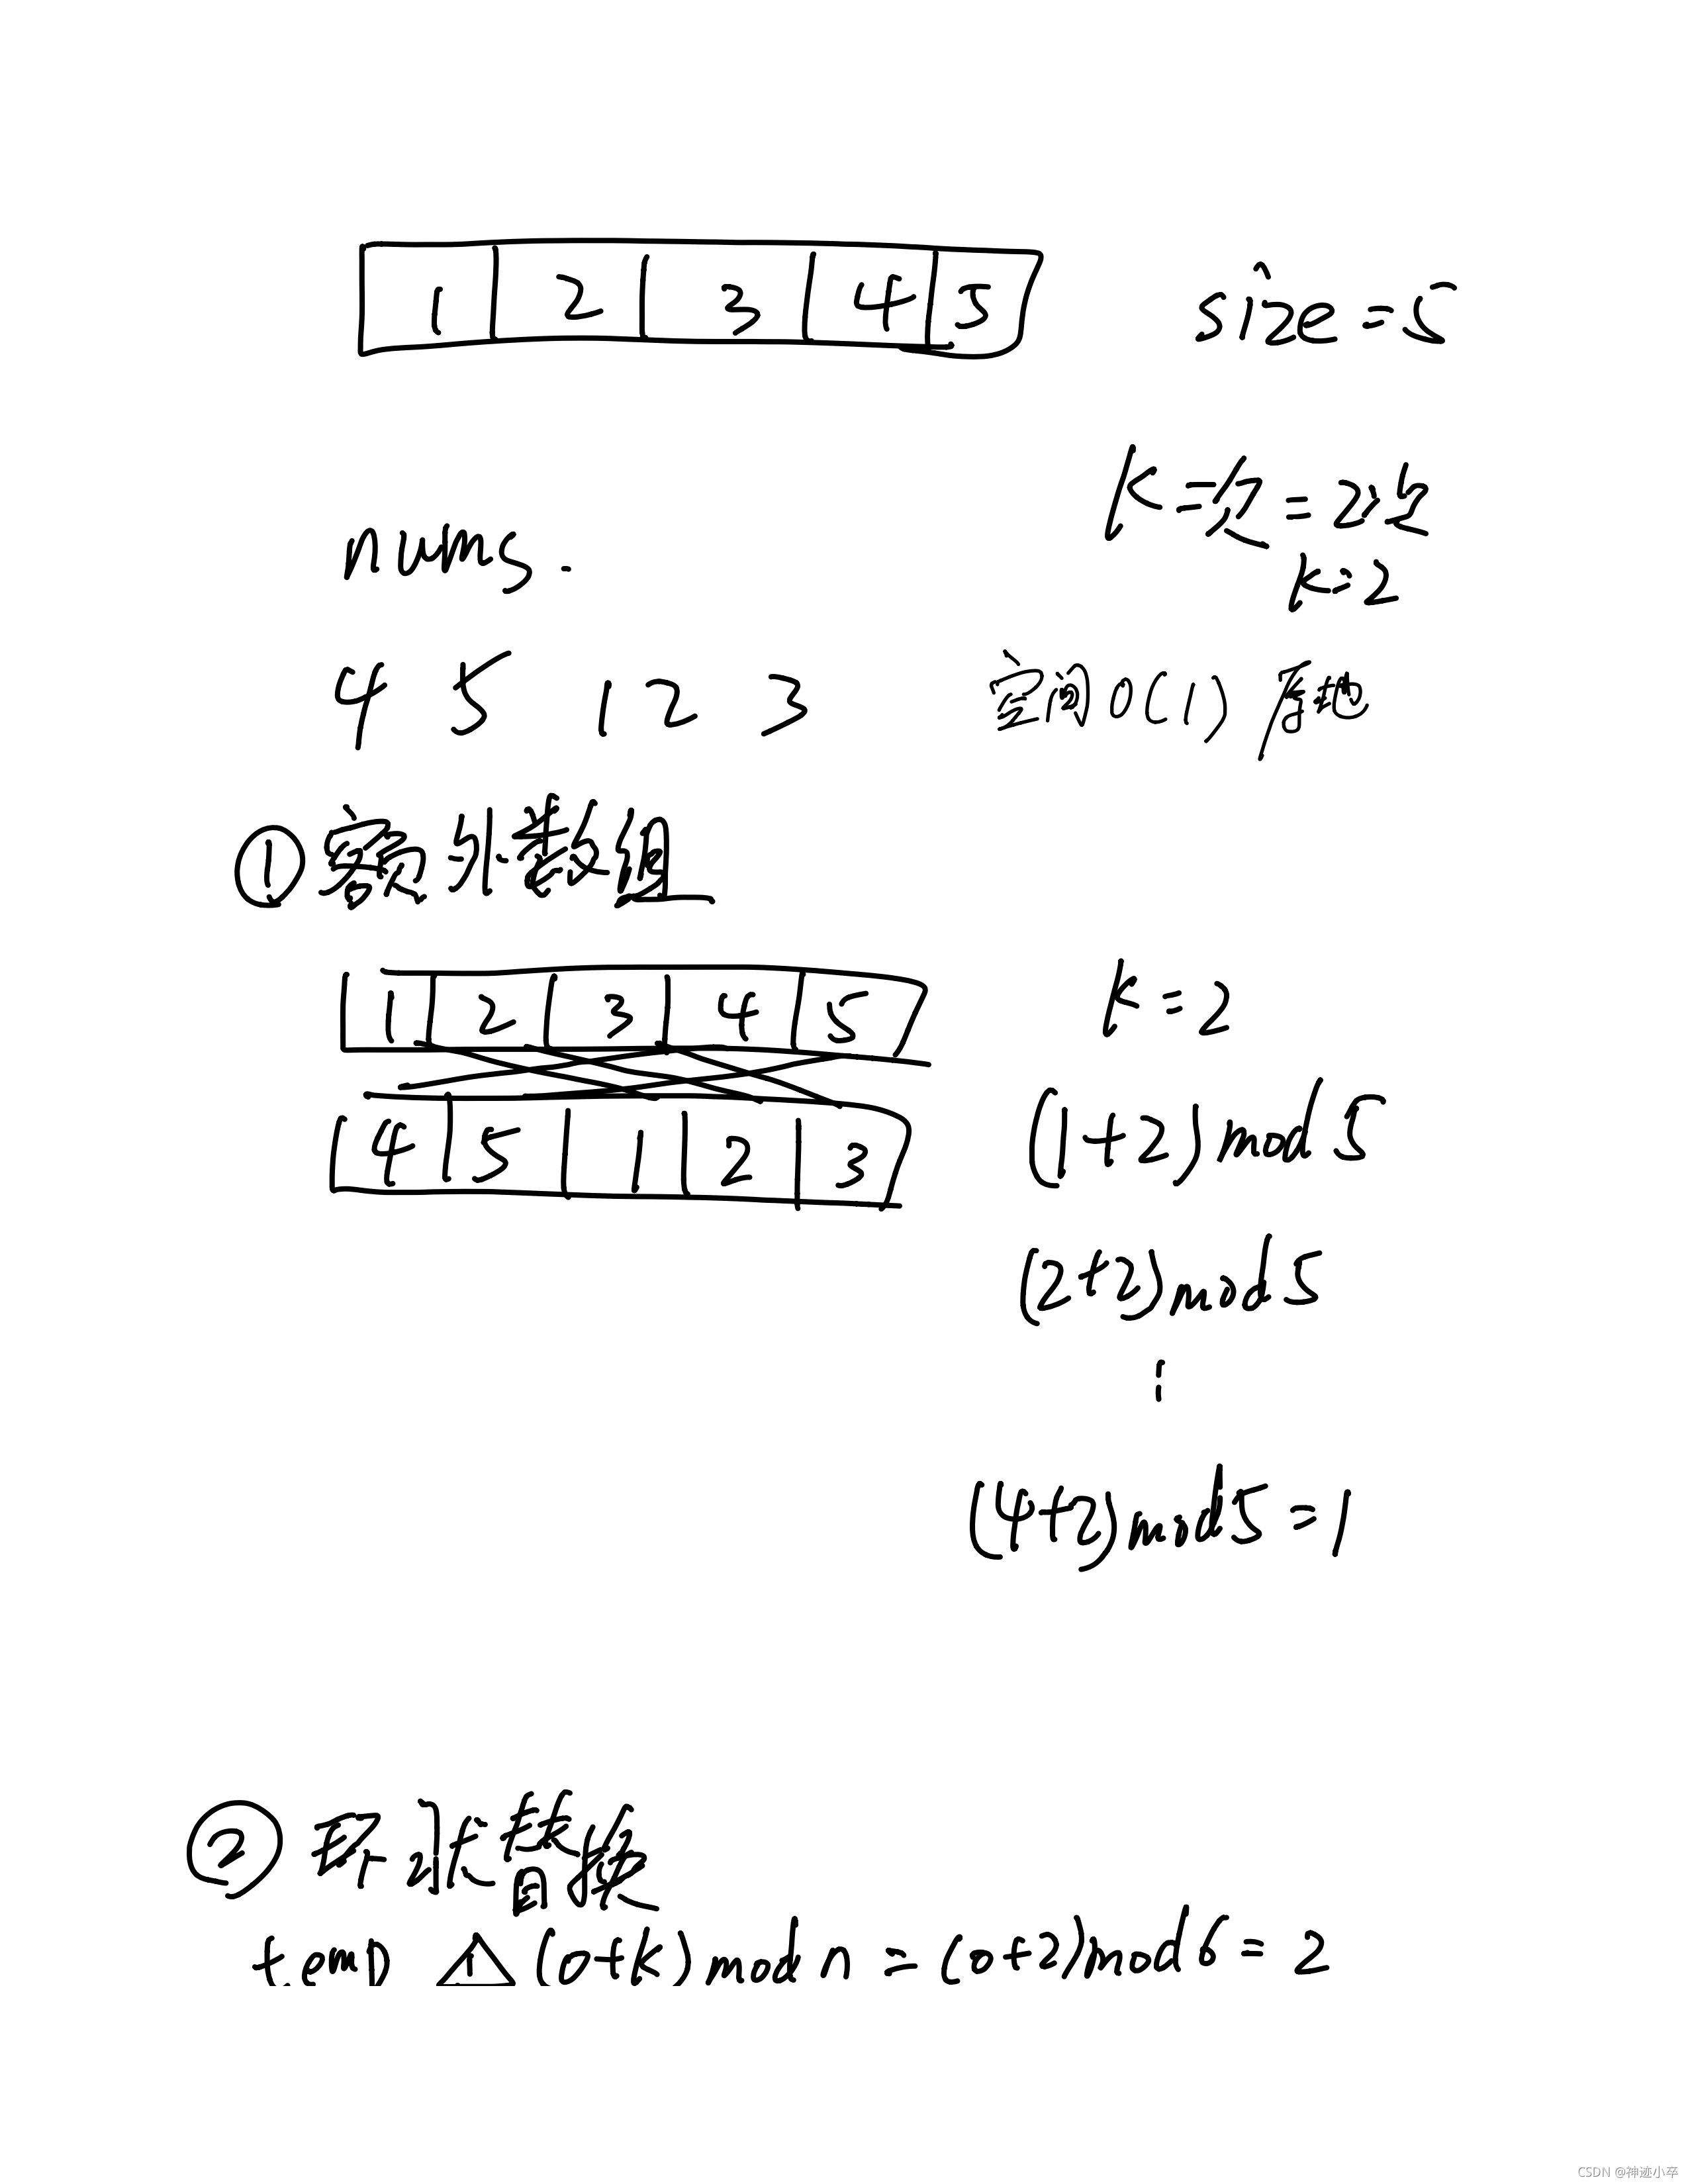 1 2 3 4 5 size=5
K=次=2次
nums.
k=2
4 5 1 2 3 空间O(1) 原地
①额外数组
1 2 3 4 5 k=2
4 5 1 2 3 (1+2)mod5
(2+2)mod5
⋮
(4+2)mod5=1
②环状替换
temp 1 (0+k)mod n=(0+2)mod6=2
CSDN @神迹小卒